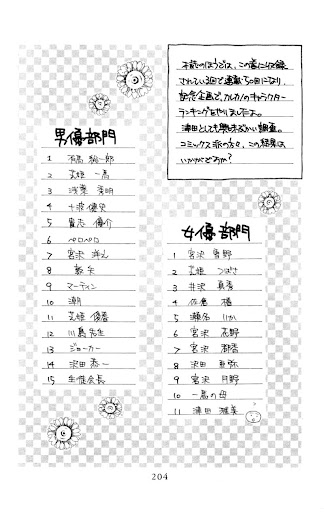 本誌のほうでは、この巻に収録
されている回で連載50回になり、
記念企画で、カレカノのキャラクター
ランキングをやりました。
津田としても興味ぶかい調査。
コミックス派の方々、この結果は
いかがですか?
男優部門
1 有馬 総一郎
2 芝姫 一馬
3 浅葉 秀明
4 十波 健史
5 貴志 優介
6 ペロペロ
7 宮沢 洋之
8 敦矢
9 マーティン
10 潮
11 芝姫 優春
12 川島先生
13 ジョーカー
14 沢田 恭一
15 生徒会長
女優部門
1 宮沢 雪野
2 芝姫 つばさ
3 井沢 真秀
4 佐倉 椿
5 瀬名 りか
6 宮沢 花野
7 宮沢 都香
8 沢田 亜弥
9 宮沢 月野
10 一馬の母
11 津田 雅美
204